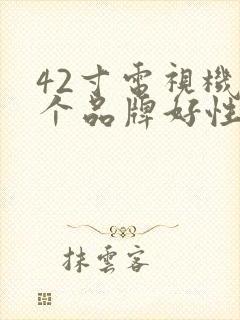 42寸電視機
个品牌好性
抹雲客